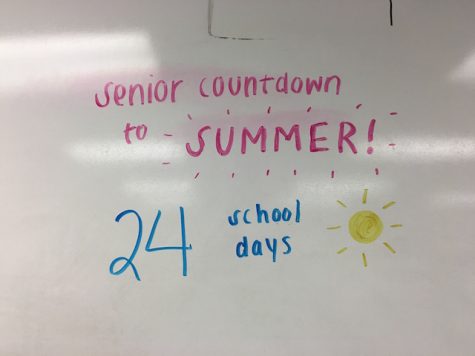 senior countdown
to SUMMER!
24 school
days